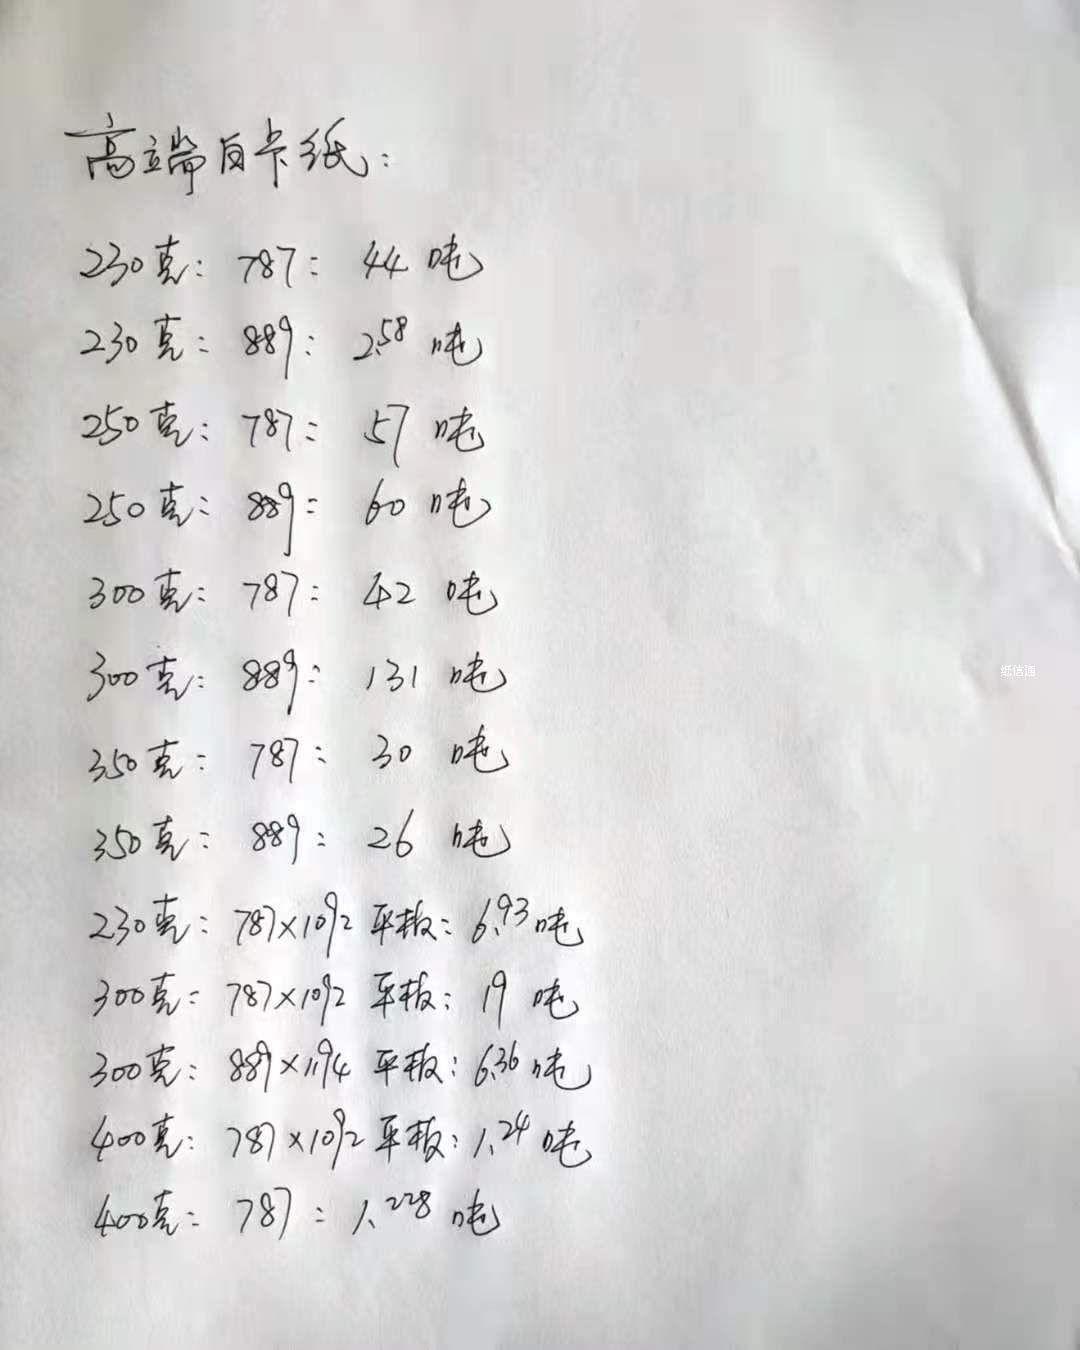 高端白卡纸：
230克：787：44吨
230克：889：2.58吨
250克：787：57吨
250克：889：60吨
300克：787：42吨
300克：889：131吨
350克：787：30吨
350克：889：26吨
230克：787×1092平板：6.93吨
300克：787×1092平板：19吨
纸信通
300克：889×1194平板：6.36吨
400克：787×1092平板：1.24吨
400克：787：1.228吨